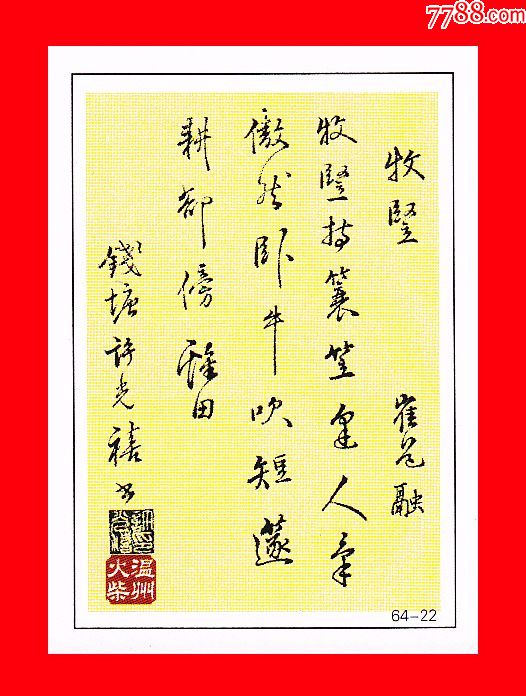 7788.com
牧豎 崔道融
牧豎持蓑笠逢人氣
傲然臥牛吹短篴
耕却傍谿田
錢塘許光禧書
温州
火柴
64-22